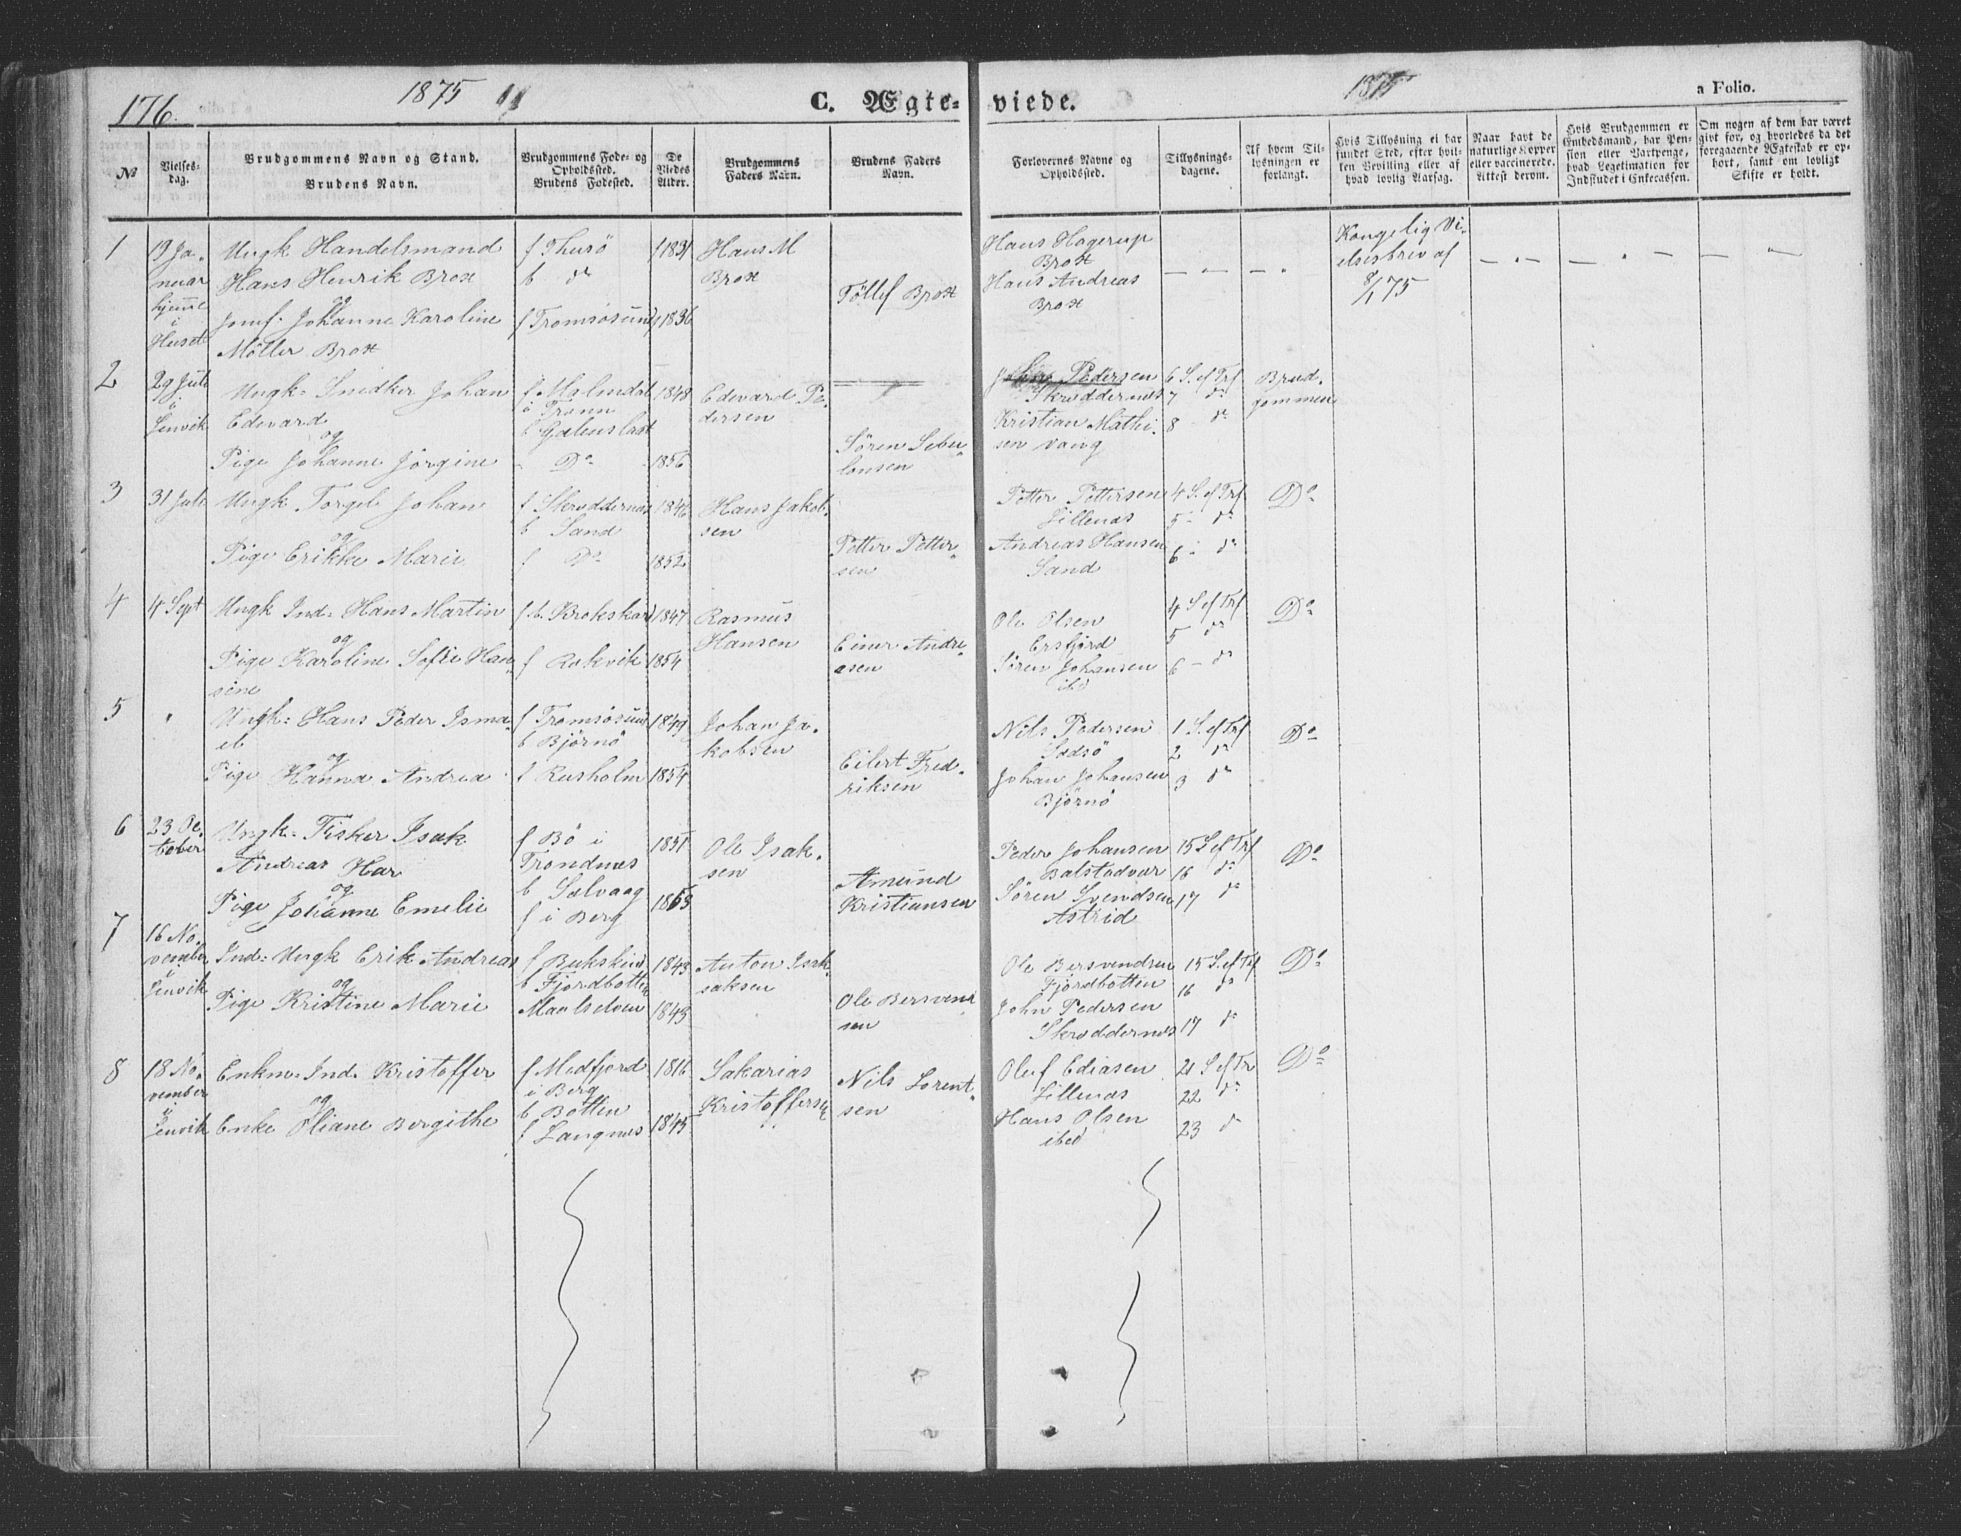 176.
1875
C. Ægteviede.
1875
a Folio.
№
Vielsesdag.
Brudgommens Navn og Stand.
Brudens Navn.
Brudgommens Føde- og Opholdssted.
Brudens Fødested.
De Viedes Alder.
Brudgommens Faders Navn.
Brudens Faders Navn.
Forlovernes Navne og Opholdssted.
Tillysningsdagene.
Af hvem Tillysningen er forlangt.
Hvis Tillysning ei har fundet Sted, efter hvilken Bevilling eller af hvad lovlig Aarsag.
Naar havt de naturlige Kopper eller vaccinerede. Attest derom.
Hvis Brudgommen er Embedsmand, har Pension eller Vartpenge, hvad Legitimation for Indskudet i Enkecassen.
Om nogen af dem har været givt før, og hvorledes da det foregaaende Ægteskab er ophørt, samt om lovligt Skifte er holdt.
1
19 Januar hjemme i Huset
Ungk Handelsmand
Hans Henrik Brox
og
Jomf. Johanne Karoline
Möller Brox
f Thurö
b do
f Tromsösund
f 1831
f 1836
Hans M
Brox
Töllef Brox
Hans Hogerup
Brox
Hans Andreas
Brox
Kongelig Vi-
elsesbrev af
8/1 75
2
29 Juli
i
Lenvik
Ungk. Snidker Johan
Edevard
og
Pige Johanne Jörgine
f Malmdal
i Trann
b Gałenslast
- Do
1848
1856
Edevard Pe-
dersen
Sören Seber
lonsen
John Pedersen
Skroddernes
Kristian Mathi-
sen Vang
6 S. ef Trf
7 do
8 - do
Brud-
gommen
3
31 Juli
Ungk Torgel Johan
og
Pige Erikke Marie
f Skroddernes
b Sand
f Do
1846
1852
Hans Jakob-
sen
Petter Petter-
sen
Petter Pettersen
Lillenæs
Andreas Hansen
Sand
4 S. ef Trf
5 - do
6 - do
Do
4
4 Sept
Ungk Ind: Hans Martin
og
Pige Karoline Sofie Han-
sine
f.b. Krokskar
f Rakvik
1847
1854
Rasmus
Hansen
Einer Andre-
asen
Ole Olsen
Ersfjord
Sören Johansen
ibd
4 S ef Trf
5 - do
6 - do
Do
5
"
Ungk: Hans Peder Isma-
el
og
Pige Hanna Andrea
f Tromsösund
b Björnö
f Rusholm
1849
1854
Johan Ja-
kobsen
Eilert Fred-
riksen
Nils Pedersen
Sodsö
Johan Johansen
Björnö
1 S. ef Trf
2 do
3 do
Do
6
23 Oc-
tober
Ungk. Fisker Isak
Andreas Har
og
Pige Johanne Emelie
f Bö i
Trondnes
b Selvaag
f i Berg
1851
1853
Ole Isak-
sen
Amund
Kristiansen
Peder Johansen
Balstadvar
Sören Svendsen
Astrid
15 S ef Trf
16 do
17 do
Do
7
16 No-
vember
i
Lenvik
Ind: Ungk Erik Andreas
og
Pige Kristine Marie
f Bukskind
b Fjordbotten
Maalselven
1843
1843
Anton Isak
saksen
Ole Bersvend
sen
Ole Bersvendsen
Fjordbotten
John Pedersen
Skroddernes
15 S. ef Trf
16 do
17 do
Do
8
18 No-
vember
i
Lenvik
Enkm: Ind. Kristoffer
og
Enke Oliane Bergithe
f Medfjord
i Berg
b Botten
f Langnes
1816
1845
Sakarias
Kristoffersen
Nils Lorent-
sen
Oluf Ediasen
Lillenæs
Hans Olsen
ibed
21 S ef Tr
22 do
23 do
Do